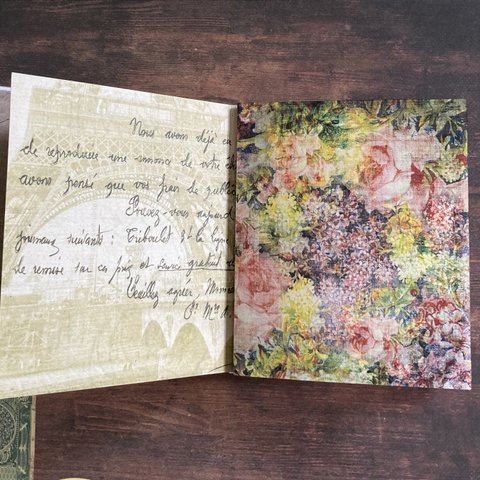 Nous avons déjà eu
de reproduire une annonce de votre
avons pensé que vos frais de public
Pouvez-vous aujourd
journaux suivants : Triboulet & la ligne
de remise sur ces prix et gratuit
Veuillez agréer, Mons